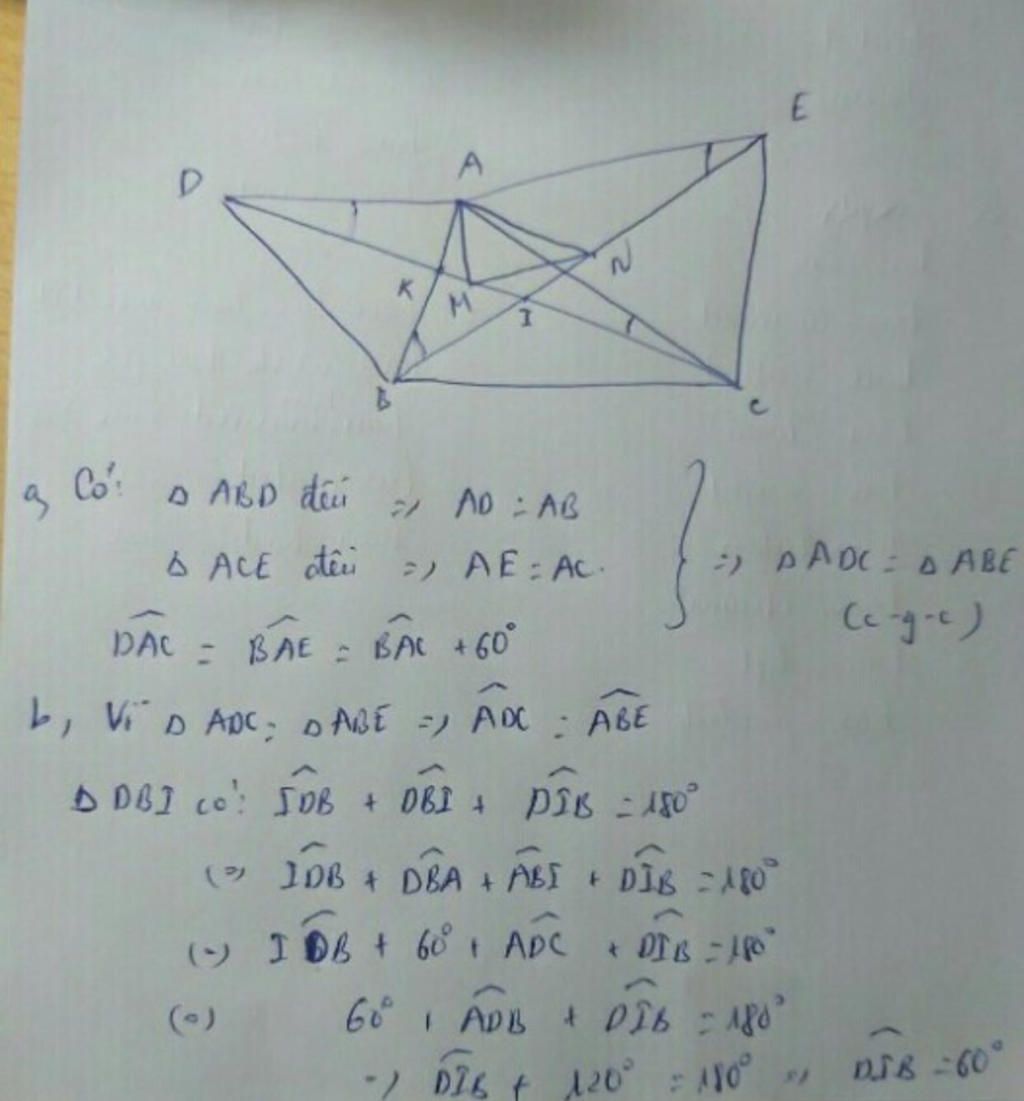 E
D
A
K
M
N
I
B
C
a, Có: Δ ABD đều => AD = AB
Δ ACE đều => AE = AC.
=> Δ ADC = Δ ABE
(c-g-c)
\widehat{DAC} = \widehat{BAE} = \widehat{BAC} + 60°
b, Vì Δ ADC = Δ ABE => \widehat{ADC} = \widehat{ABE}
Δ DBI có: \widehat{IDB} + \widehat{DBI} + \widehat{DIB} = 180°
(=) \widehat{IDB} + \widehat{DBA} + \widehat{ABI} + \widehat{DIB} = 180°
(=) \widehat{IDB} + 60° + \widehat{ADC} + \widehat{DIB} = 180°
(=) 60° + \widehat{ADB} + \widehat{DIB} = 180°
=> \widehat{DIB} + 120° = 180° => \widehat{DIB} = 60°